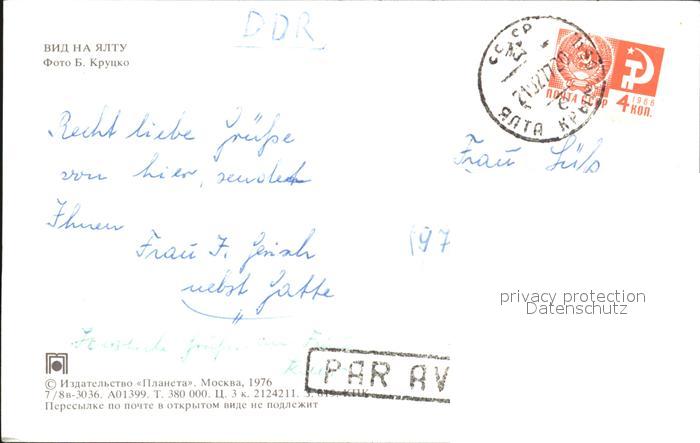 DDR
ВИД НА ЯЛТУ
Фото Б. Круцко
СССР
ЯЛТА КРЫМ
ПОЧТА СССР
1966
4 КОП.
Recht liebe Grüße
von hier, sendet
Ihnen
Frau F. Gersch
nebst Gatte
Frau Süß
(97
privacy protection
Datenschutz
Herzliche Grüße an
PAR AV
© Издательство «Планета». Москва, 1976
7/8в-3036. А01399. Т. 380 000. Ц. 3 к. 2124211. З. 619. КПК
Пересылке по почте в открытом виде не подлежит